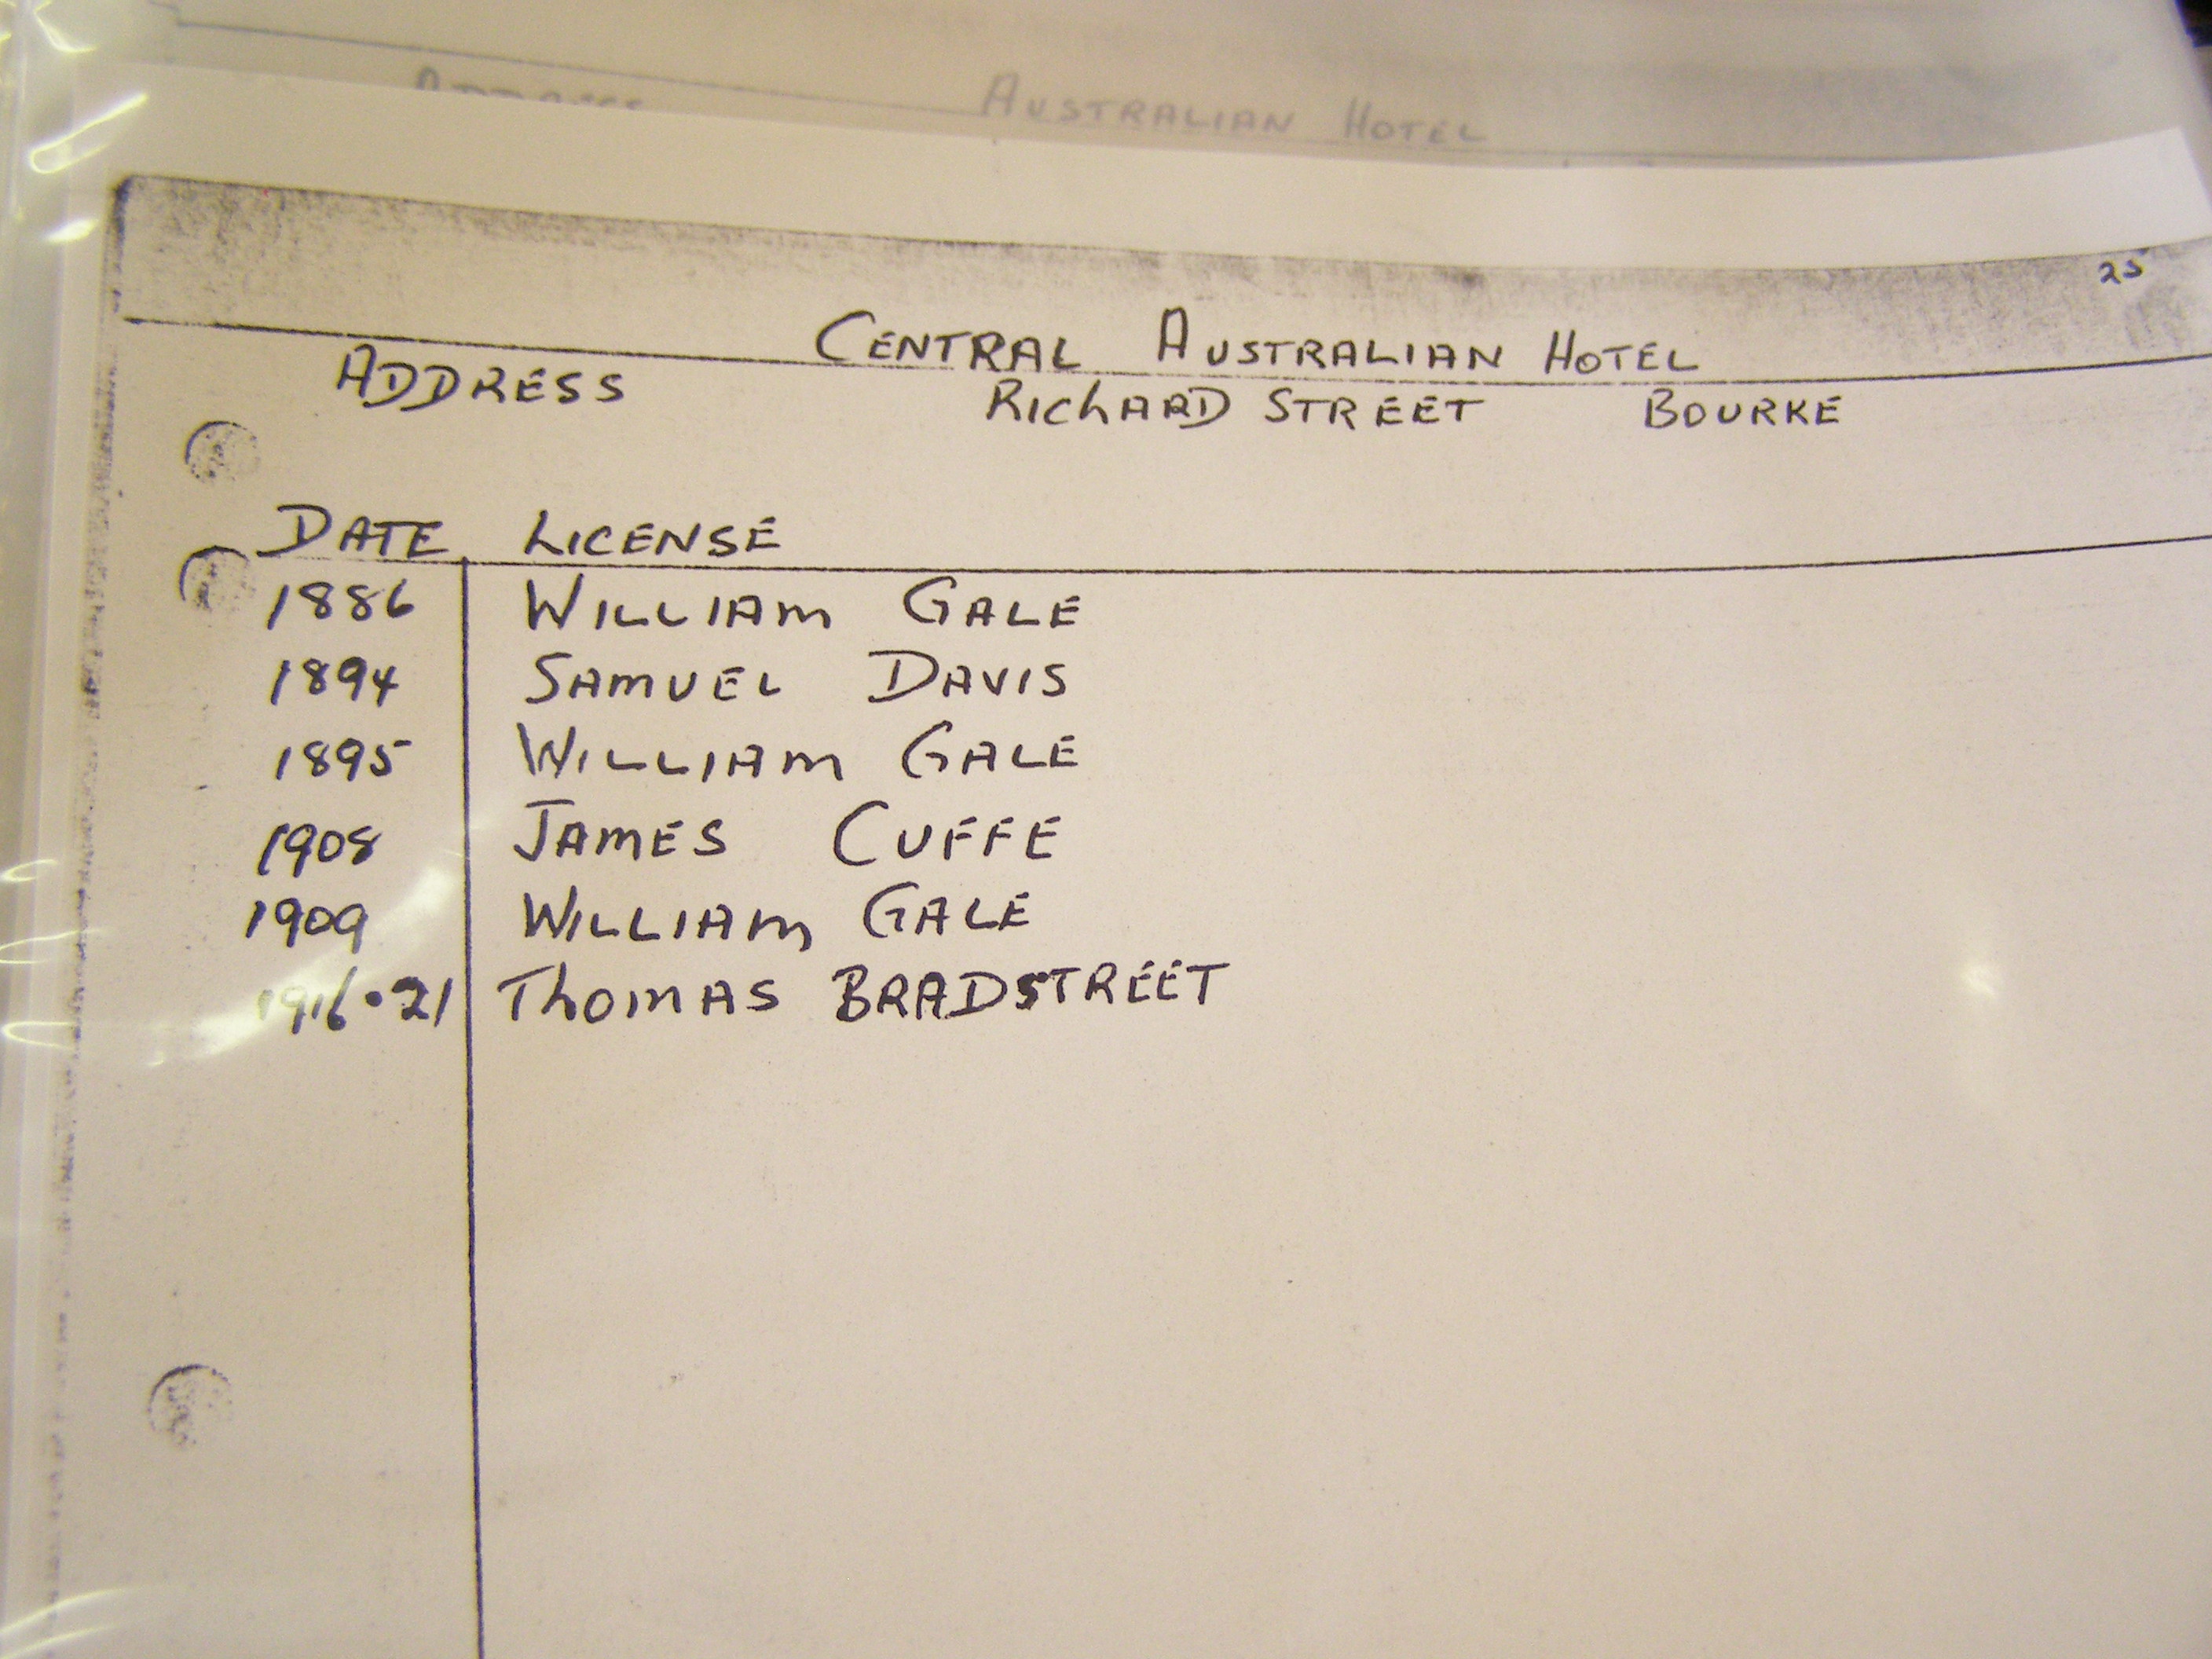 ADDRESS AUSTRALIAN HOTEL
25
CENTRAL AUSTRALIAN HOTEL
ADDRESS RICHARD STREET BOURKE
DATE LICENSE
1886 WILLIAM GALE
1894 SAMUEL DAVIS
1895 WILLIAM GALE
1908 JAMES CUFFE
1909 WILLIAM GALE
1916•21 THOMAS BRADSTREET